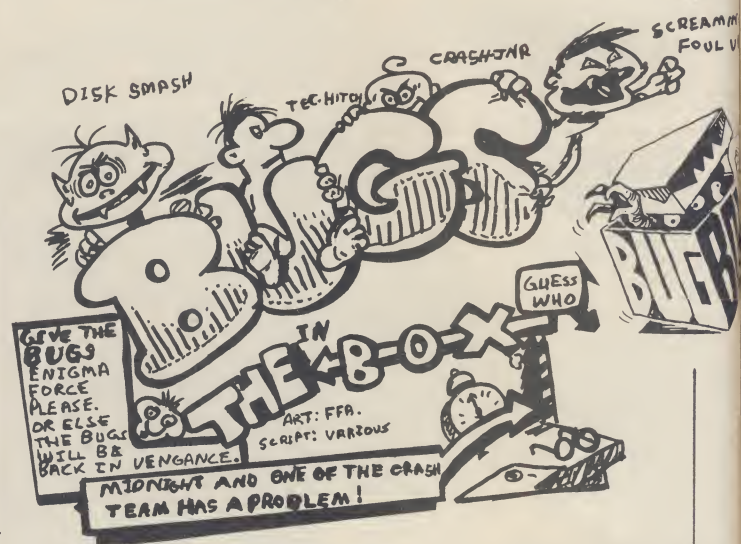 DISK SMASH
TEC-HITCH
CRASH-JNR
SCREAMIN
FOUL U
BUGS
IN
THE B-O-X
GUESS
WHO
BUGB
GIVE THE
BUGS
ENIGMA
FORCE
PLEASE.
OR ELSE
THE BUGS
WILL BE
BACK IN VENGANCE.
ART: FFA.
SCRIPT: VARIOUS
MIDNIGHT AND ONE OF THE CRASH
TEAM HAS A PROBLEM!